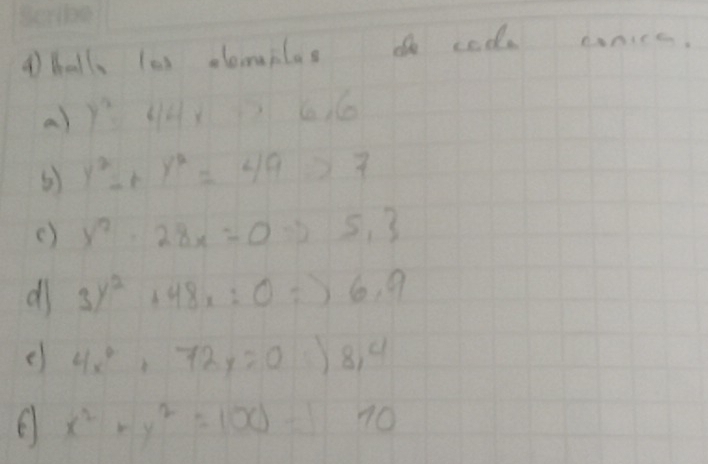 Scribe
1) Halla los elementos de cada conica.
a) y² = 44x => 6,6
b) y² + y² = 49 => 7
c) y² - 28x = 0 => 5,3
d) 3y² + 48x = 0 => 6,9
e) 4x² + 72y = 0 => 8,4
f) x² + y² = 100 => 10